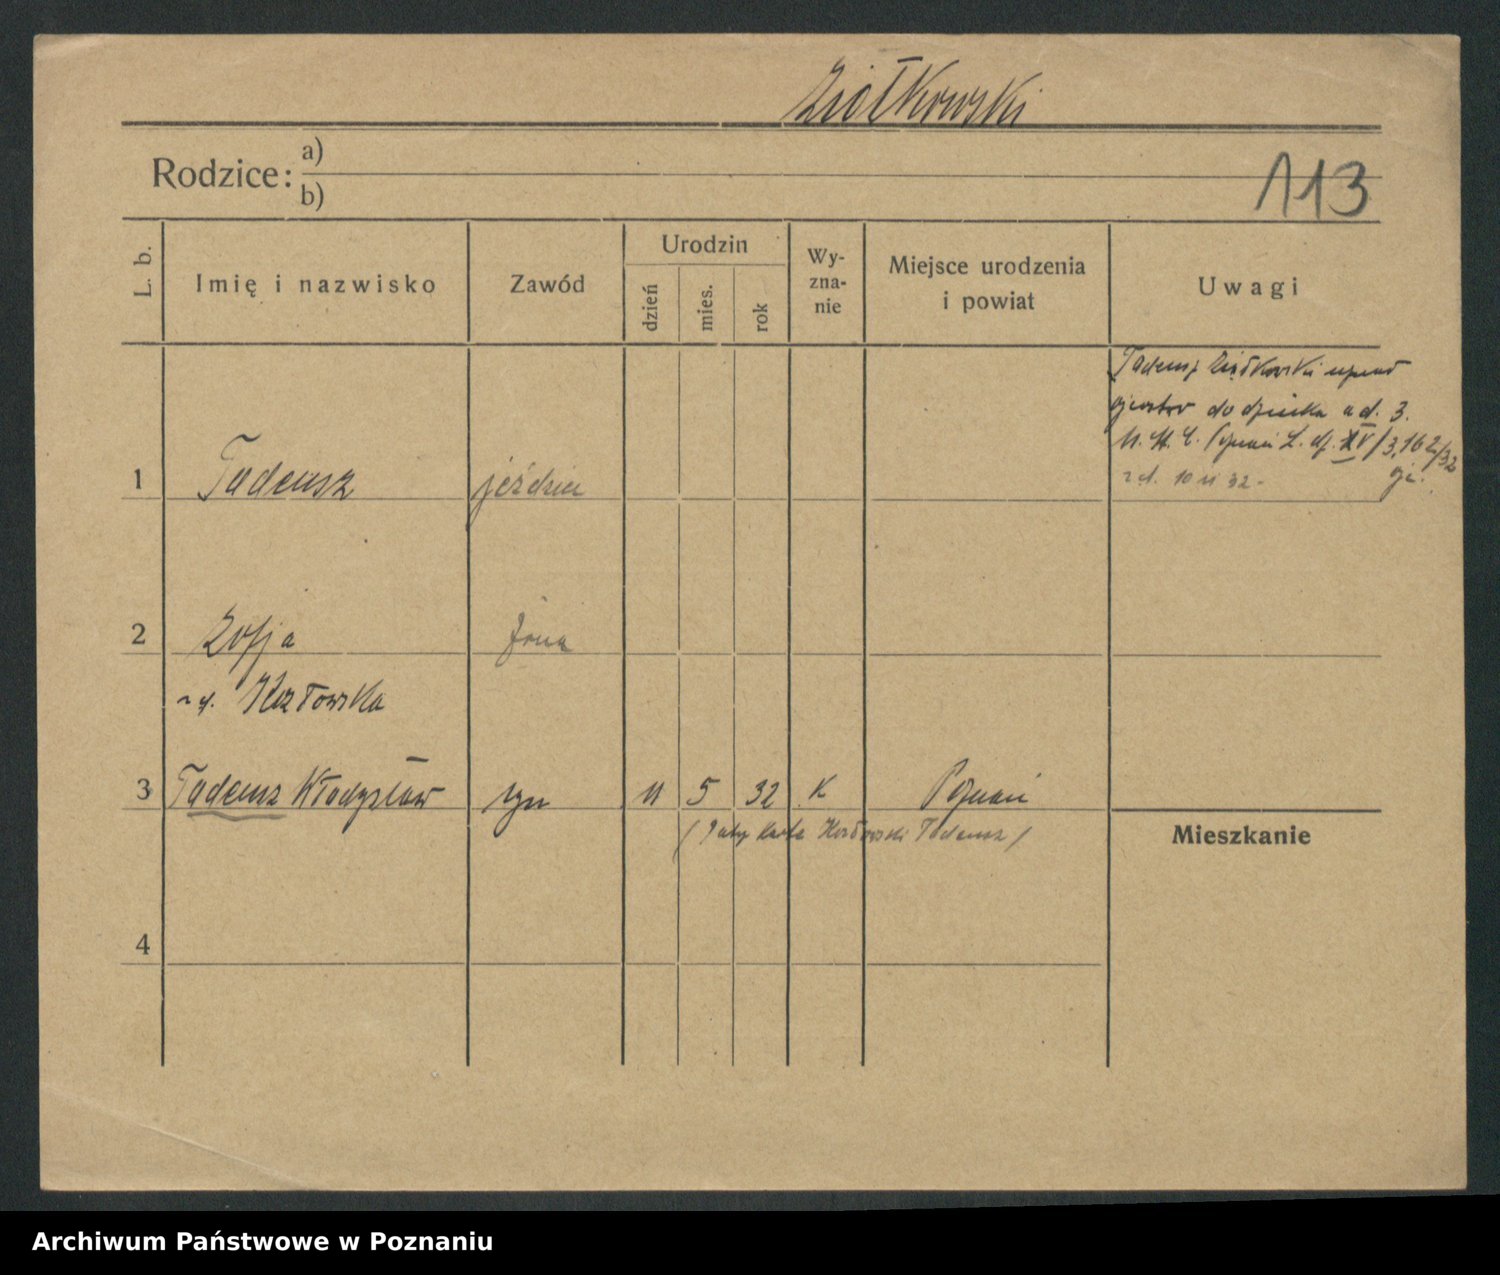 Ziółkowski
Rodzice: a)
b)
113
L. b.
Imię i nazwisko
Zawód
Urodzin
dzień
mies.
rok
Wy-
zna-
nie
Miejsce urodzenia
i powiat
Uwagi
Tadeusz Ziółkowski uznał
ojcostwo do dziecka ad. 3.
XV/3,162/32
z d. 10 11 32 -
1 Tadeusz jeździec
2 Zofja żona
z d. Kozłowska
3 Tadeusz Władysław syn 11 5 32 K Poznań
Kozłowski Tadeusz)
Mieszkanie
4
Archiwum Państwowe w Poznaniu